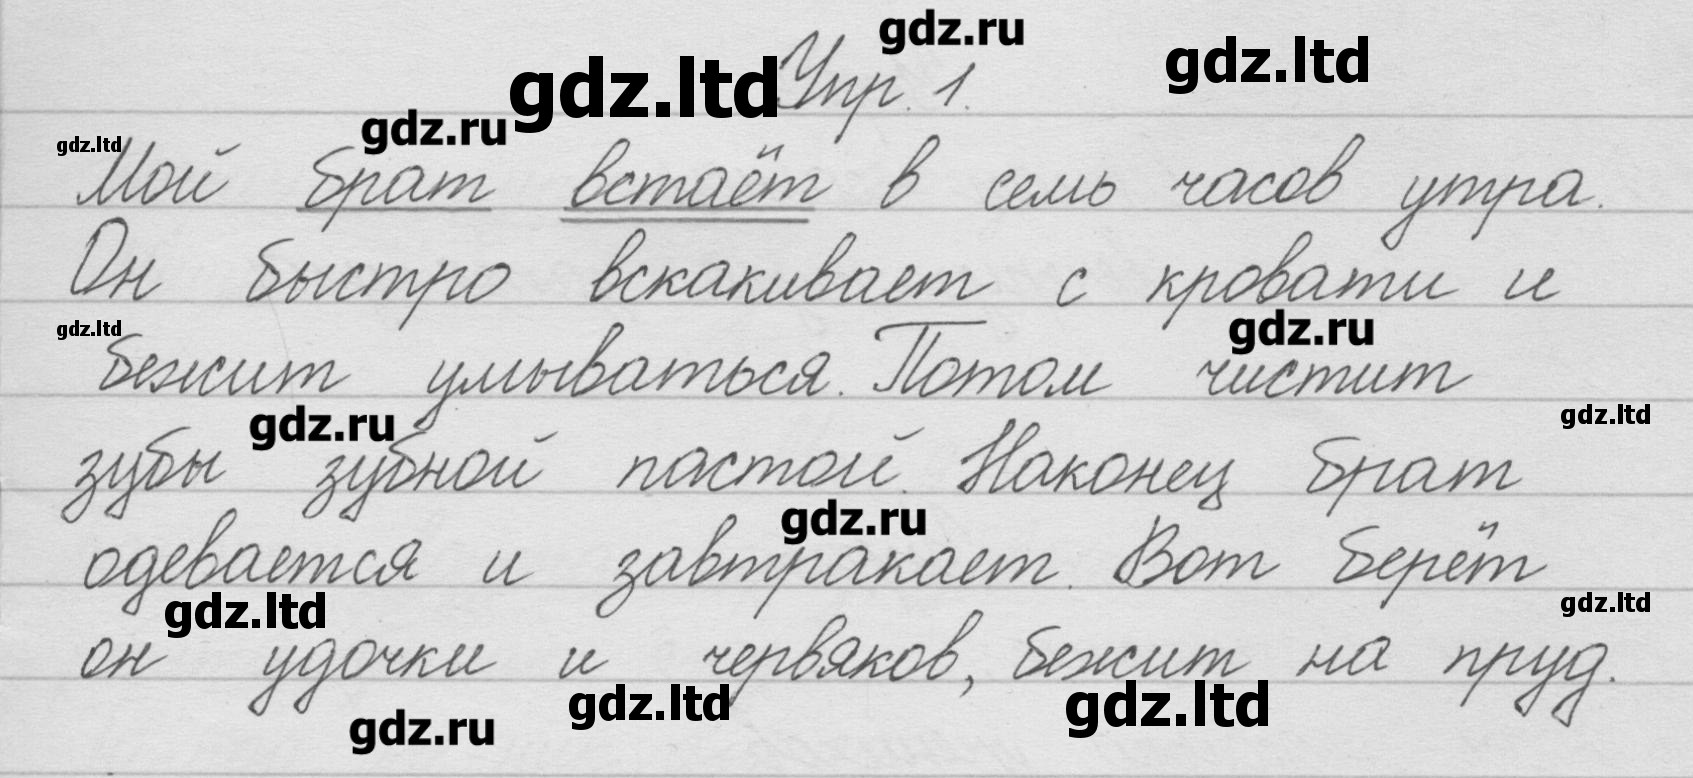 gdz.ru
gdz.ltd
gdz.ltd
Упр. 1.
gdz.ru
gdz.ltd
Мой брат встаёт в семь часов утра.
Он быстро вскакивает с кровати и
gdz.ltd
gdz.ru
бежит умываться. Потом чистит
gdz.ru
gdz.ltd
зубы зубной пастой. Наконец брат
gdz.ru
одевается и завтракает. Вот берёт
gdz.ltd
gdz.ltd
он удочки и червяков, бежит на пруд.
gdz.ltd
gdz.ltd
gdz.ru